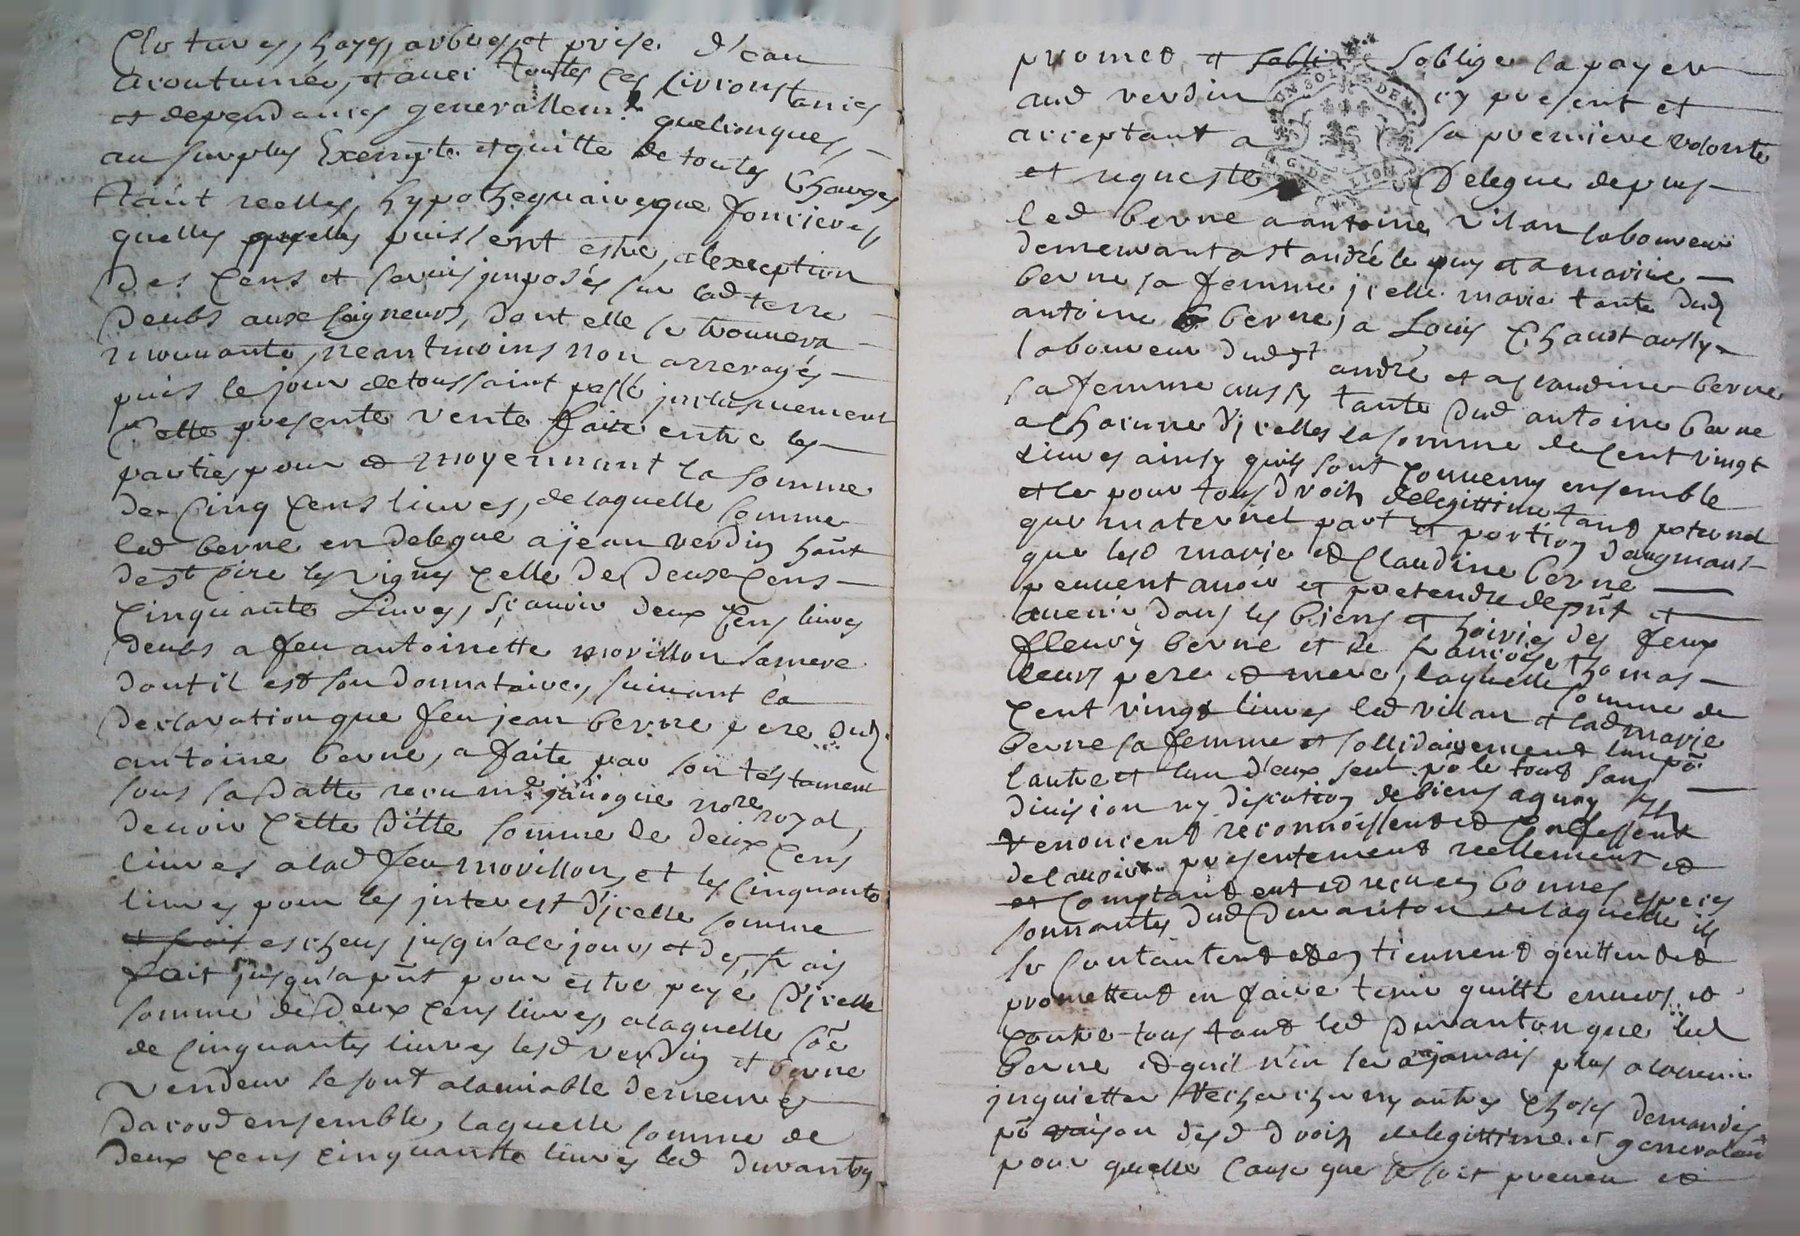 Clotures, hayes, arbres et prise d'eau
acoutumé, et avec toutes ces circonstances
et dependances generallemt quelconques,
au surplus Exempte et quitte de toutes Charges
tant reelles, hypothequaires que foncieres
quelles quelles puissent estre, a lexception
des Cens et servis jmposés sur lad terre
deubs aux seigneurs, dont elle se trouvera
mouvante, neantmoins non arreragés
puis le jour de toussaint passé jnclusivement
Cette presente vente faite entre les
parties pour et moyennant la somme
de Cinq Cens livres, de laquelle somme
led berne en delegue a jean verdin hant
de st Cire les vignes Celle de Deux Cens
Cinquante Livres, sçavoir deux Cens livres
deubs a feu antoinette morillon sa mere
dont il est son donnataire, suivant la
declaration que feu jean berne pere dud
antoine berne, a faite par son testament
sous sa Datte recu me janogue nore royal,
devoir Cette ditte somme de deux Cens
livres a lad feu morillon, et les Cinquante
livres pour les jnterest d'jcelle somme
et frais escheus jusqu'a ce jours et des frais
fait jusqu'a pnt pour estre payé d'jcelle
somme de deux Cens livres, a laquelle soe
de Cinquantes livres lesd verdin et berne
vendeur se sont a lamiable demeures
dacord ensemble, laquelle somme de
deux Cens cinquante livres led duranton
promet et soblige la payer
aud verdin cy present et
acceptant a sa premiere volonté
et requeste Delegue de plus
led berne a antoine vilan laboureur
demeurant a st andré le puy et a marie
berne sa femme jcelle marie tante dud
antoine berne, a Louis Chaut aussy
laboureur dud st andré et a claudine berne
sa femme aussy tante dud antoine berne
a Chacune d'jcelles la somme de Cent vingt
Livres ainsy quils sont Convenus ensemble
et ce pour tous droits delegittime tant paternel
que maternel part et portion daugmant
que lesd marie et Claudine berne
peuvent avoir et pretendre de pnt et
avenir dans les biens et hoiries des feux
fleury berne et de francoise thomas
leurs pere et mere, laquelle somme de
Cent vingt livres led vilan et lad marie
berne sa femme et sollidairement lun po
lautre et lun d'eux seul po le tout sans
division ny discution de biens a quoy ils
renoncent reconnoissent et Confessent
de lavoir presentement reellement et
Comptant eut et recu en bonnes especes
sonnantes dud Duranton de laquelle ils
se Contantent et en tiennent quitte et
promettent en faire tenir quitte envers et
Contre tous tant led Duranton que led
berne et quil n'en sera jamais plus a lavenir
jnquietter recherchers ny autres Choses demandés
po raison desd droits delegittime et generalemt
pour quelle Cause que se soit preveu et